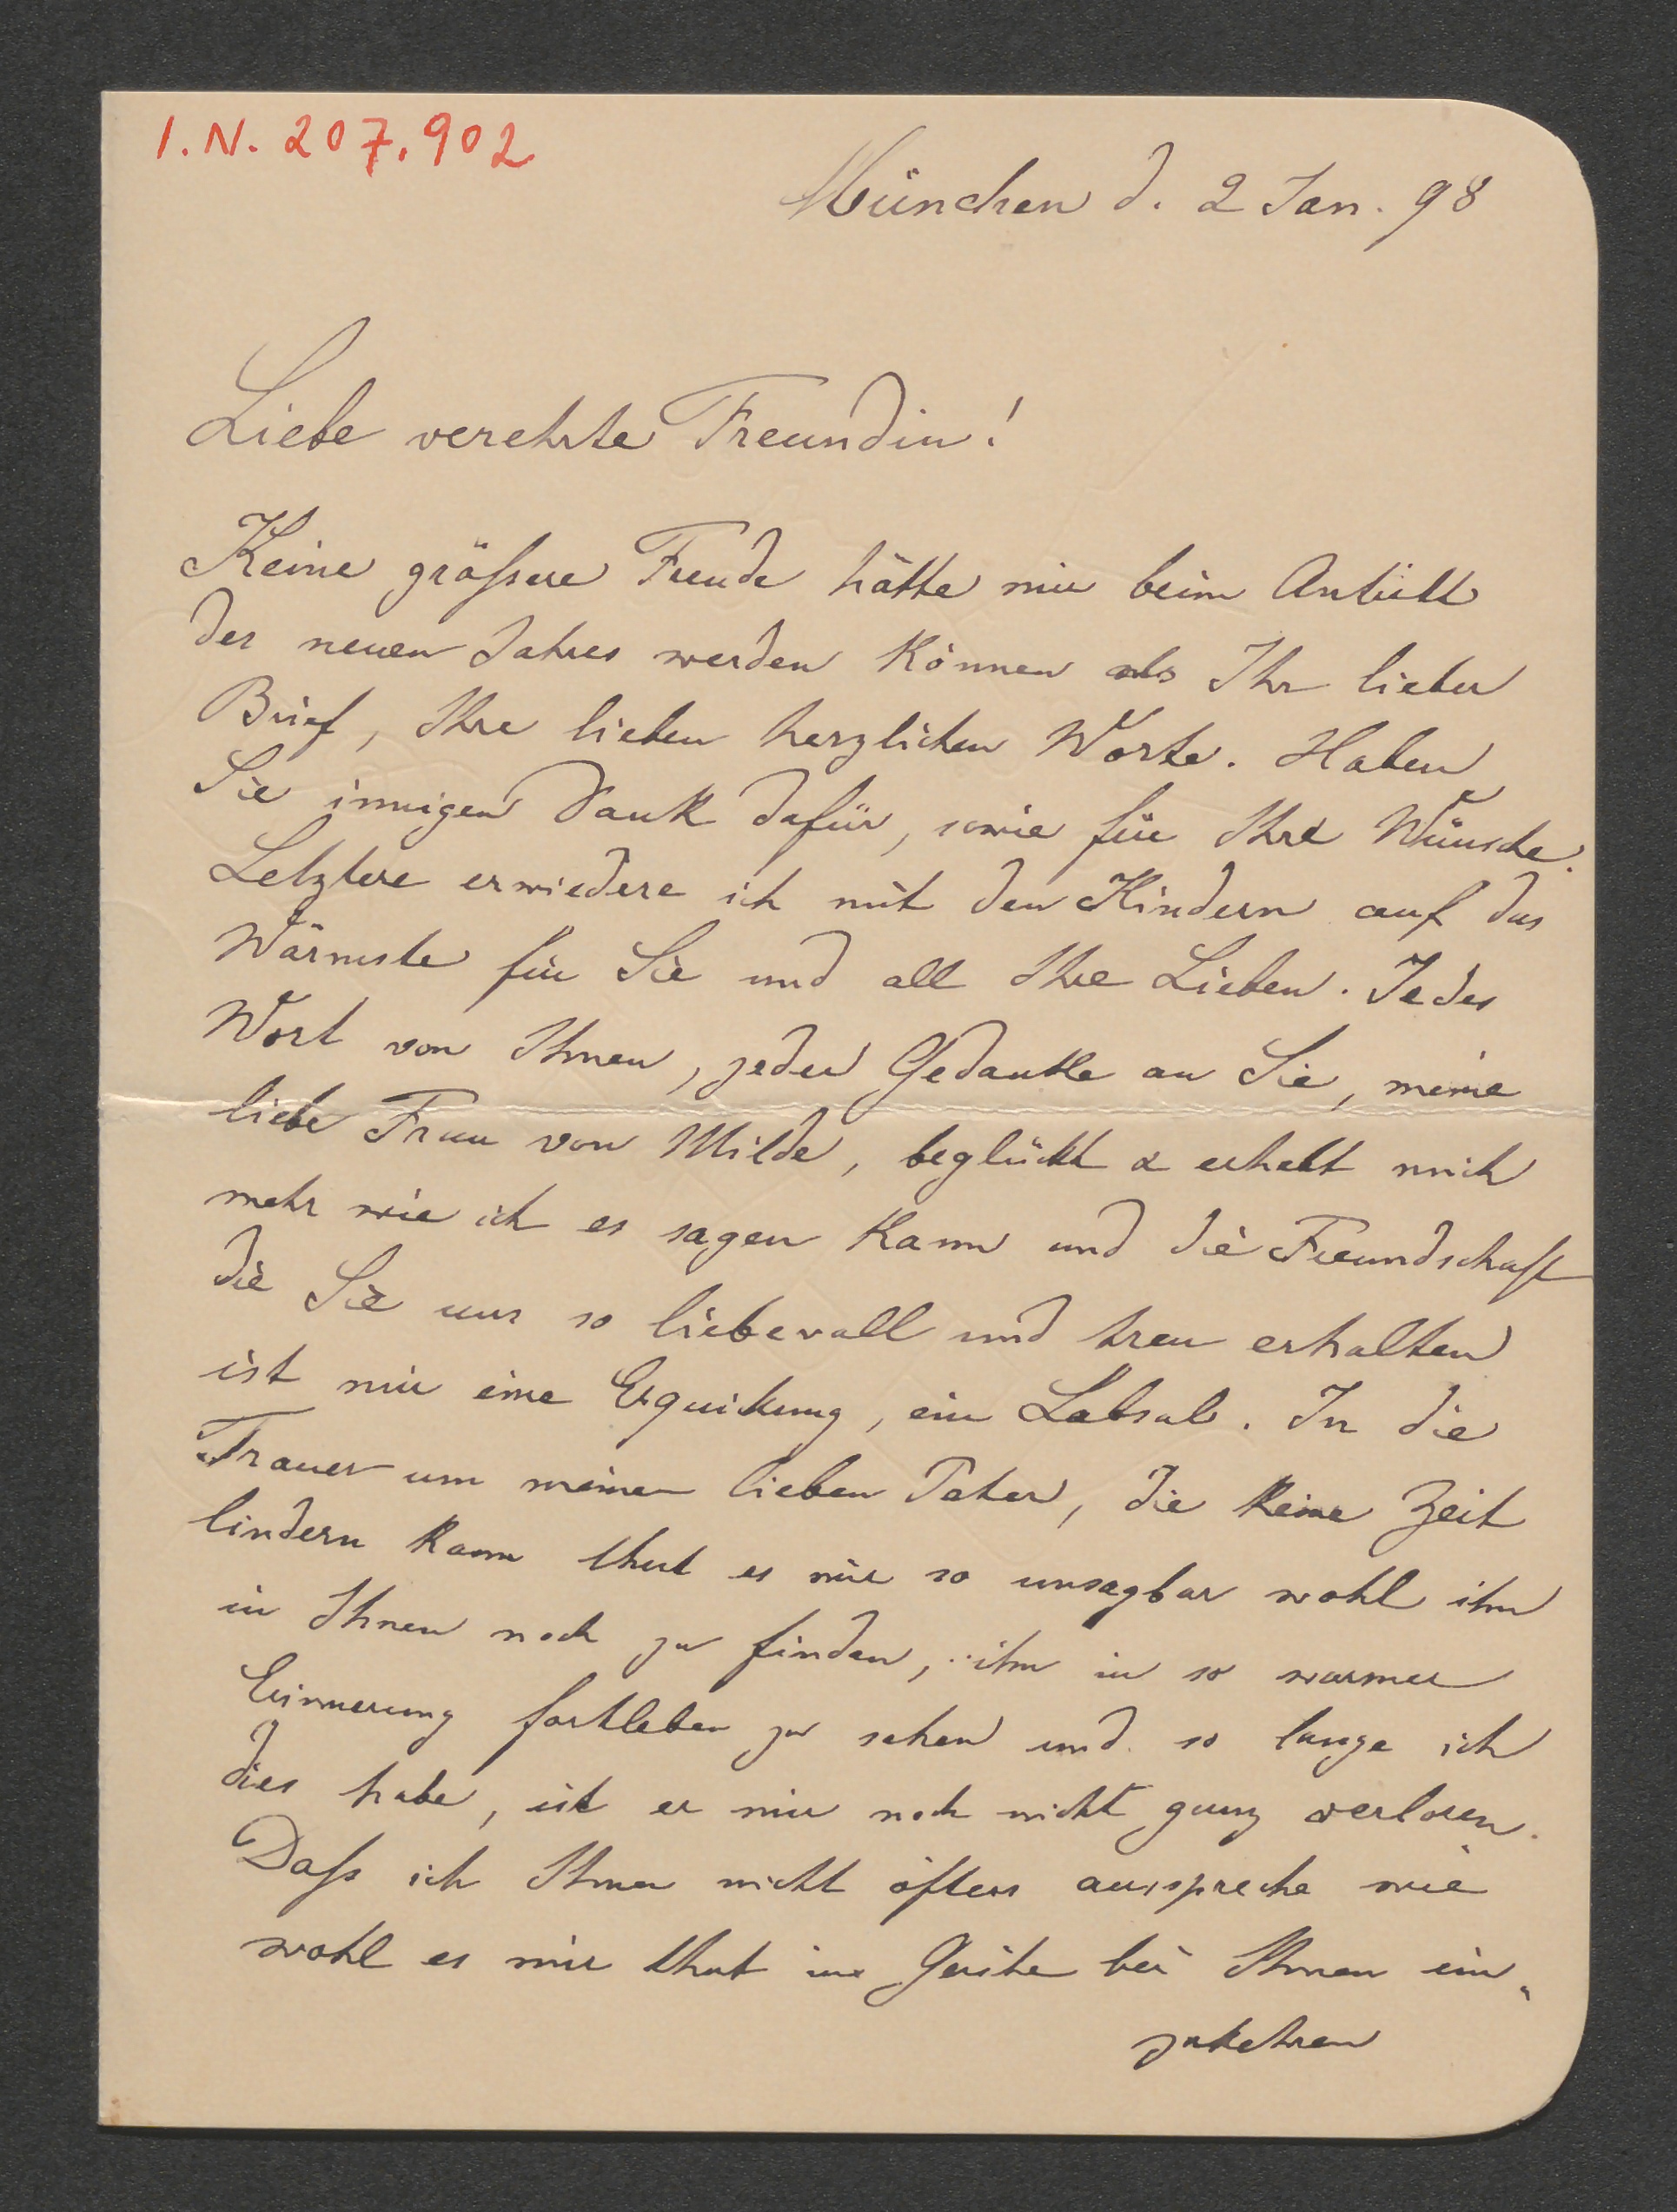 I.N. 207.902
München d. 2 Jan. 98
Liebe verehrte Freundin!
Keine größere Freude hätte mir beim Antritt
des neuen Jahres werden können als Ihr lieber
Brief, Ihre lieben herzlichen Worte. Haben
Sie innigen Dank dafür, sowie für Ihre Wünsche.
Letztere erwiedere ich mit den Kindern auf das
Wärmste für Sie und all Ihre Lieben. Jedes
Wort von Ihnen, jeder Gedanke an Sie, meine
liebe Frau von Milde, beglückt & erhebt mich
mehr wie ich es sagen kann und die Freundschaft
die Sie uns so liebevoll und treu erhalten
ist mir eine Erquikung, ein Labsal. In die
Trauer um meinen lieben Peter, die keine Zeit
lindern kann thut es mir so unsagbar wohl ihn
in Ihnen noch zu finden, ihn in so warmer
Erinnerung fortleben zu sehen und so lange ich
dies habe, ist er mir noch nicht ganz verloren.
Daß ich Ihnen nicht öfters ausspreche wie
wohl es mir thut im Geiste bei Ihnen ein„
zukehren